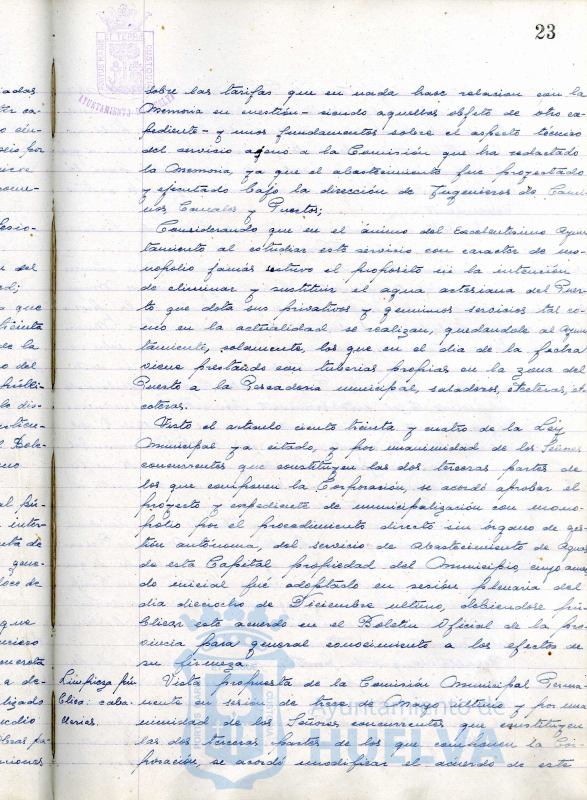 23
AYUNTAMIENTO DE HUELVA
sobre las tarifas que en nada hace relacion con la
Memoria en cuestión - siendo aquellas objeto de otro ex-
pediente - y unos fundamentos sobre el aspecto técnico
del servicio ageno a la Comisión que ha redactado
la Memoria, ya que el abastecimiento fué proyectado
y ejecutado bajo la dirección de Ingenieros de Cami-
nos Canales y Puertos;
Considerando que en el ánimo del Excelentisimo Ayun-
tamiento al estudiar este servicio con caracter de mo-
nopolio jamás estuvo el proposito ni la intención
de eliminar y sustituir el agua artesiana del Puer-
to que dota sus privativos y genuinos servicios tal co-
mo en la actualidad se realizan, quedandole al Ayun-
tamiento, solamente, los que en el dia de la fecha
viene prestando con tuberias propias en la zona del
Puerto a la Pescaderia municipal, saladores, etceteras, et-
ceteras.
Visto el articulo ciento treinta y cuatro de la Ley
Municipal ya citado, y por unanimidad de los Señores
concurrentes que constituyen las dos terceras partes de
los que componen la Corporación, se acordó aprobar el
proyecto y expediente de municipalización con mono-
polio por el procedimiento directo sin órgano de ges-
tión autónoma, del servicio de Abastecimiento de Aguas
de esta Capital propiedad del Municipio, cuyo acuer-
do inicial fué adoptado en sesión plenaria del
dia dieciocho de Diciembre ultimo, debiendose pu-
blicar este acuerdo en el Boletin Oficial de la pro-
vincia para general conocimiento a los efectos de
su firmeza.
Limpieza pú-
blica: caba-
llerias.
Vista propuesta de la Comisión Municipal Perma-
nente en sesión de trece de Mayo ultimo y por una-
nimidad de los Señores concurrentes que constituyen
las dos terceras partes de los que componen la Cor-
poración, se acordó modificar el acuerdo de este
Ayuntamiento de
HUELVA